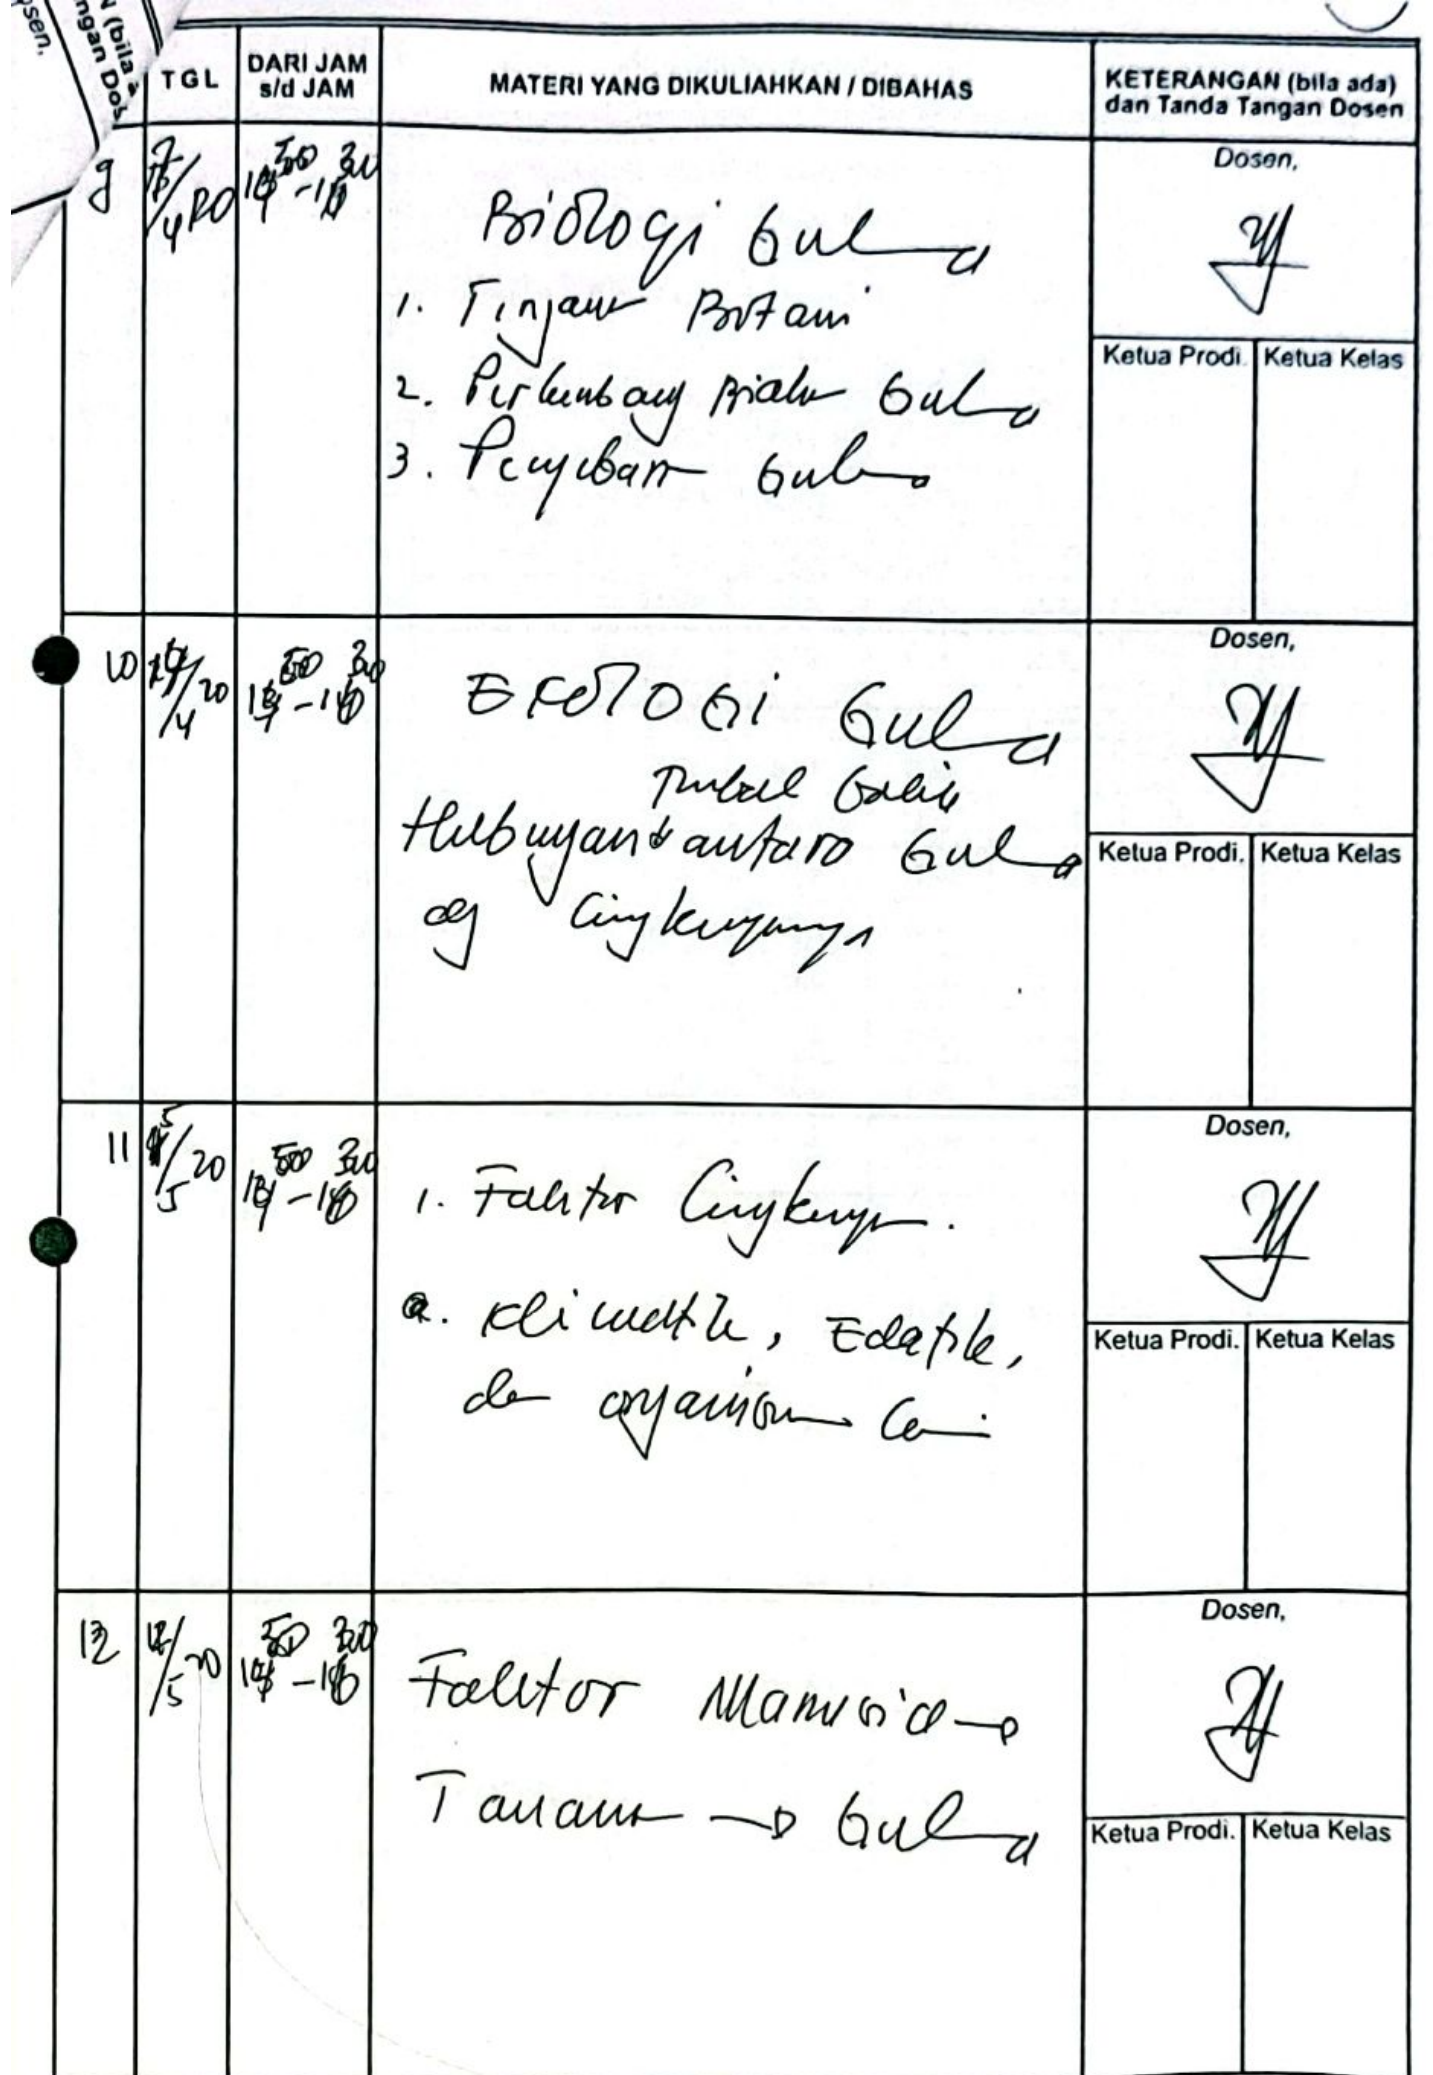 N (bila a
ngan Dos
osen,
TGL
DARI JAM
s/d JAM
MATERI YANG DIKULIAHKAN / DIBAHAS
KETERANGAN (bila ada)
dan Tanda Tangan Dosen
9
Biologi Gulma
1. Tinjauan Botani
2. Perkembang Biakan Gulma
3. Penyebaran Gulma
Dosen,
Ketua Prodi. Ketua Kelas
10
/4 20
Ekologi Gulma
Timbal balik
Hubungan antara Gulma
dg Lingkungannya
Dosen,
Ketua Prodi. Ketua Kelas
11
5/5 20
1. Faktor Lingkungan.
a. Klimatik, Edafik,
dan organisme lain
Dosen,
Ketua Prodi. Ketua Kelas
12
12/5 20
Faktor Manusia →
Tanaman → Gulma
Dosen,
Ketua Prodi. Ketua Kelas